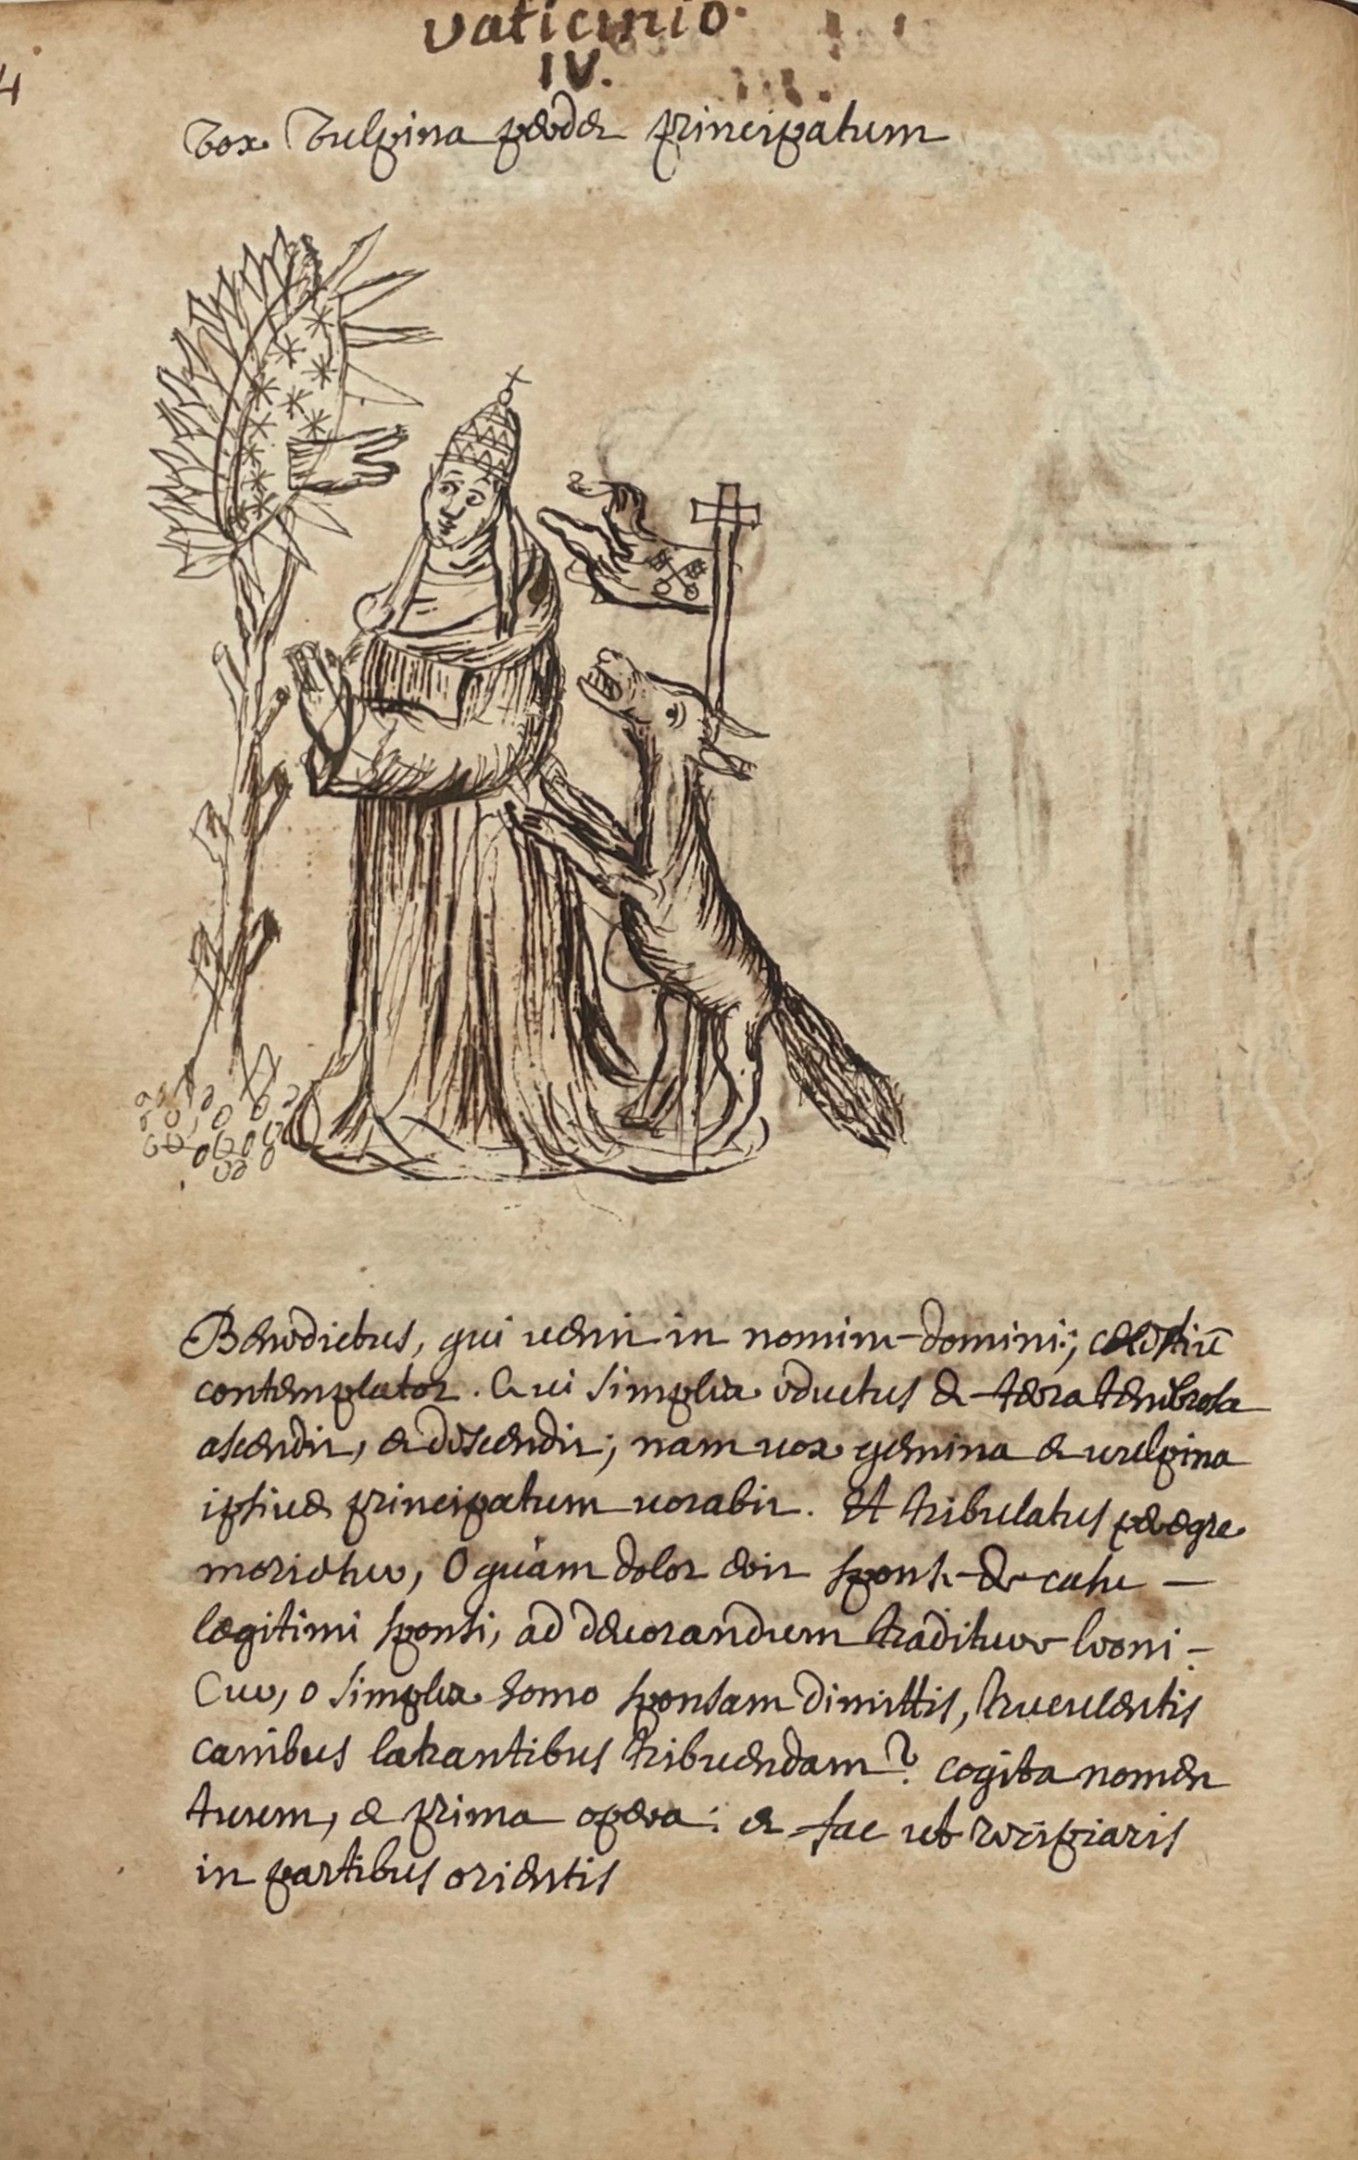 4
Vaticinio
IV.
Vox Vulpina perdet principatum
Benedictus, qui uenit in nomine domini; coelestiū
contemplator. Qui simplex eductus de terra tenebrosa
ascendit, et descendit; nam uox gemina et uulpina
ipsius principatum uorabit. Et tribulatus peregre
morietur, O quàm dolor erit sponsae de casu
legitimi sponsi, ad deuorandum traditur leoni.
Cur, o simplex homo sponsam dimittis, truculentis
canibus latrantibus tribuendam? cogita nomen
tuum, et prima opera: et fac ut recipiaris
in partibus orientis